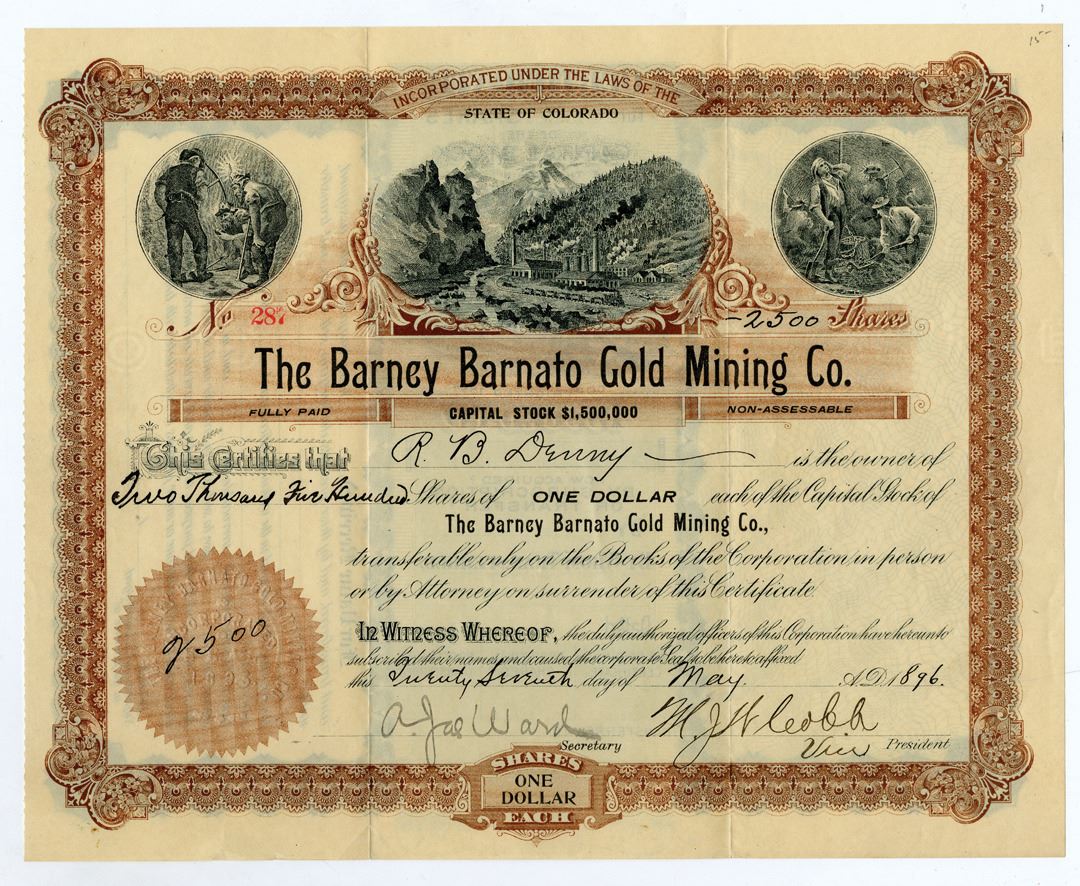 15
INCORPORATED UNDER THE LAWS OF THE
STATE OF COLORADO
No. 287
-2500 Shares
The Barney Barnato Gold Mining Co.
FULLY PAID CAPITAL STOCK $1,500,000 NON-ASSESSABLE
This Certifies that R. B. Denny is the owner of
Two Thousand Five Hundred Shares of ONE DOLLAR each of the Capital Stock of
The Barney Barnato Gold Mining Co.,
transferable only on the Books of the Corporation, in person
or by Attorney on surrender of this Certificate.
IN WITNESS WHEREOF, the duly authorized officers of this Corporation have hereunto
subscribed their names and caused the corporate Seal to be hereto affixed
this Twenty Seventh day of May. A.D. 1896.
2500
A. Jae Ward
Secretary
Cobb
Vice President
SHARES
ONE
DOLLAR
EACH